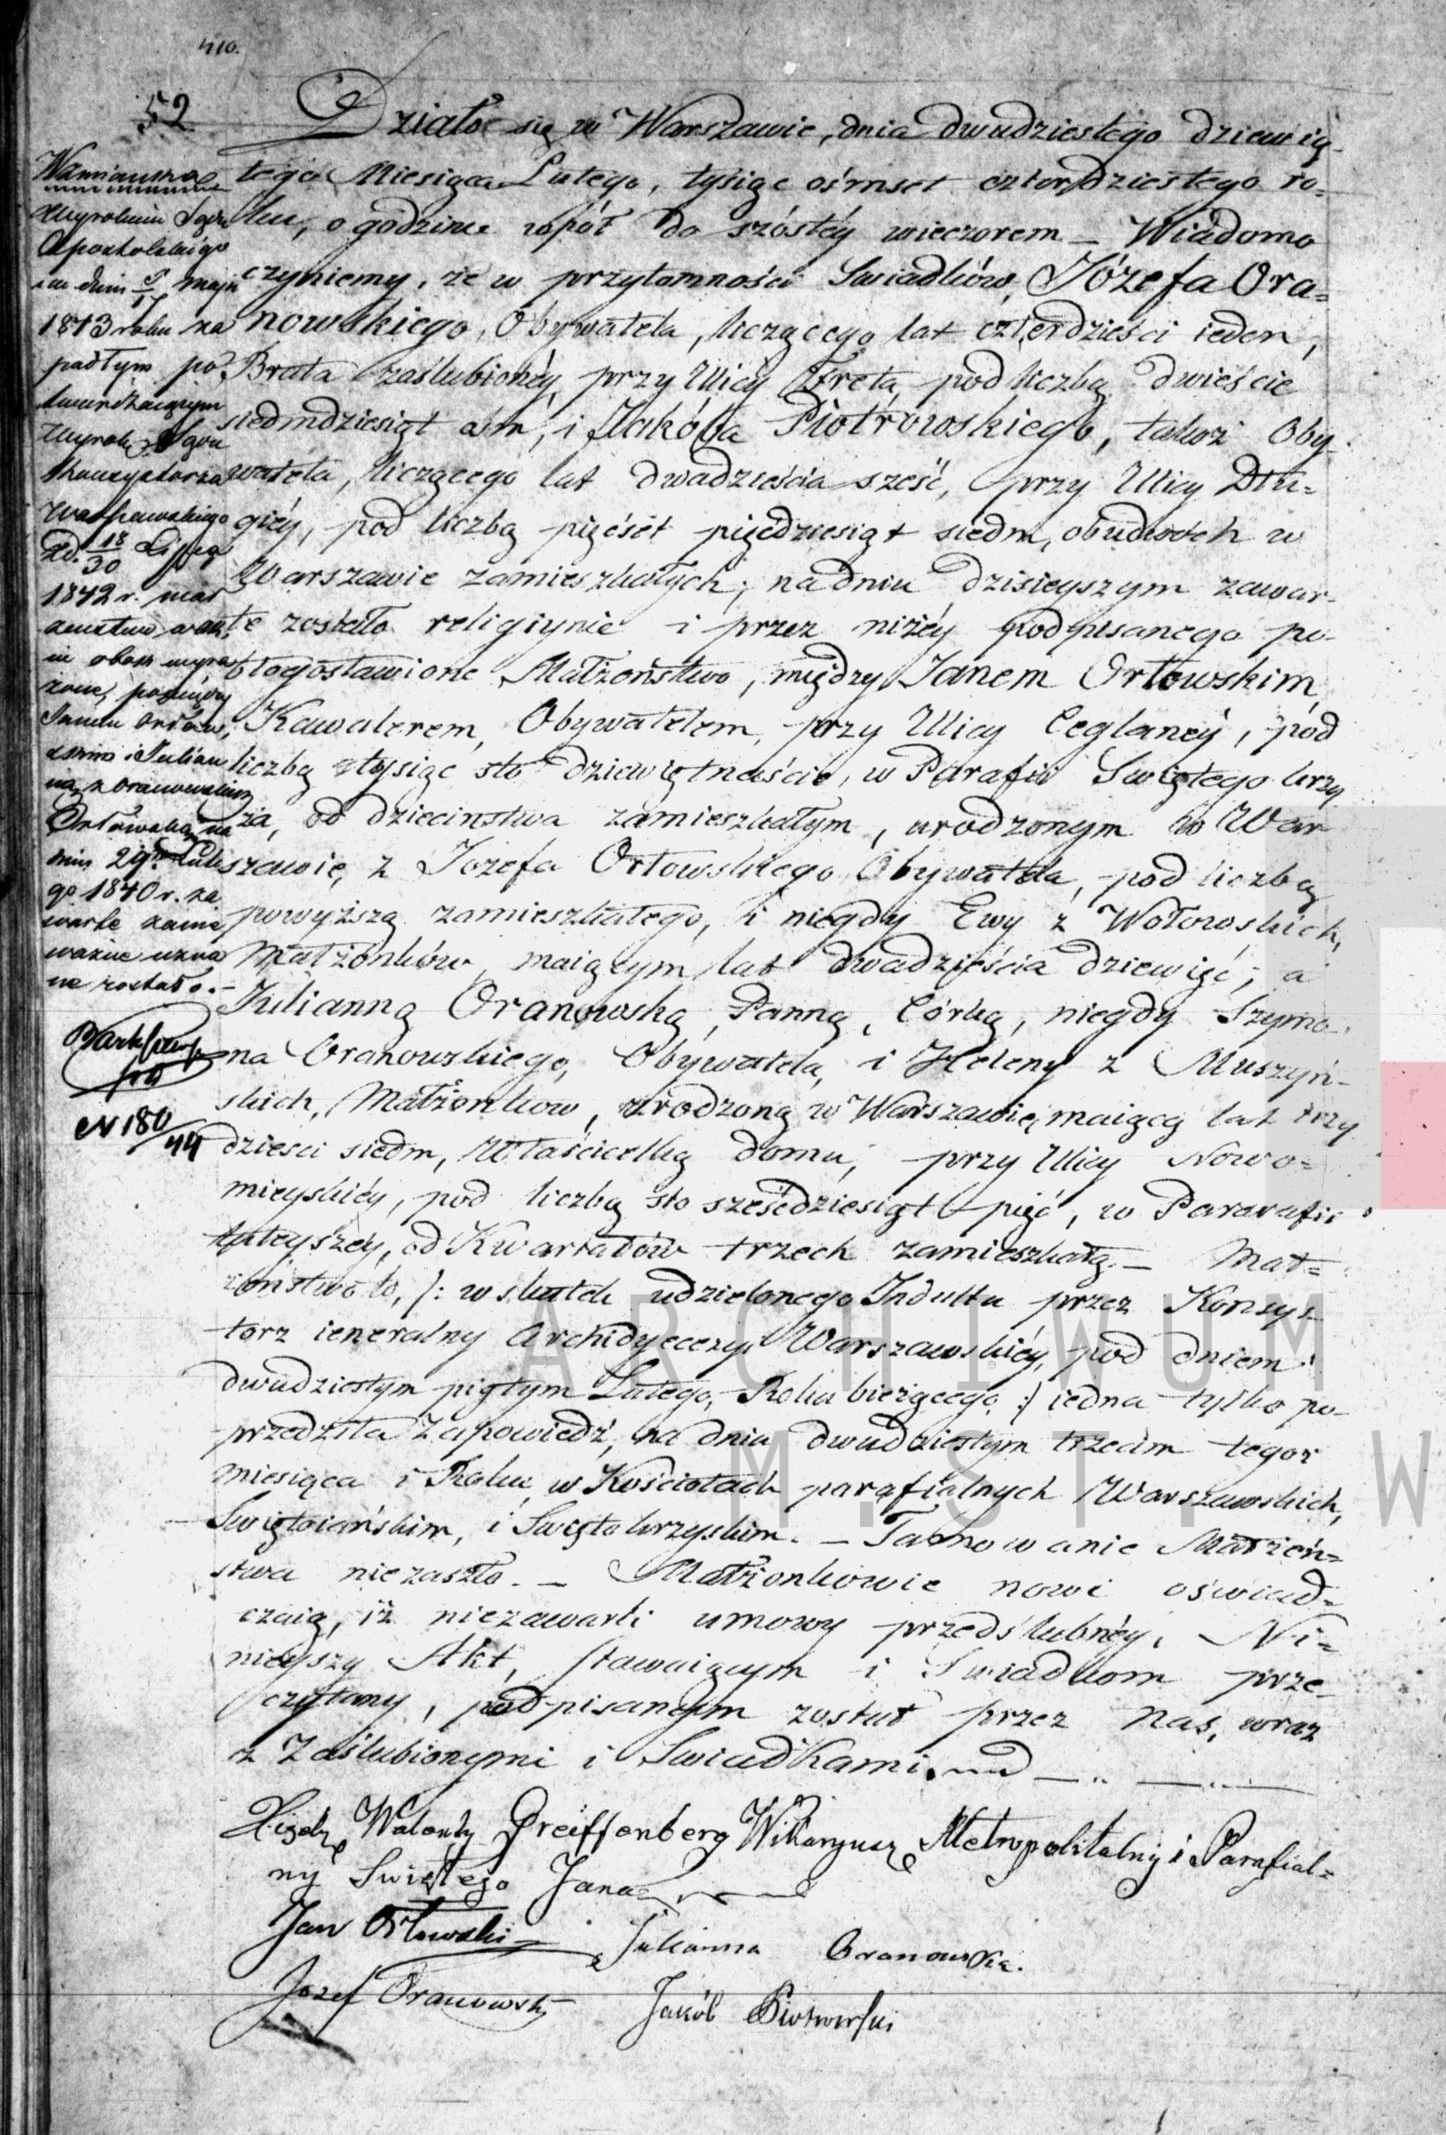 410.
52
Działo się w Warszawie, dnia dwudziestego dziewią-
tego Miesiąca Lutego, tysiąc ośmset czterdziestego ro=
ku, o godzinie wpół do szóstéy wieczorem — Wiadomo
czyniemy, że w przytomności Swiadków, Józefa Ora=
nowskiego, Obywatela, liczącego lat czterdzieści ieden,
Brata zaślubionéy, przy Ulicy Freta, pod liczbą dwieście
siedmdziesiąt ośm, i Jakóba Piotrowskiego, takoż Oby-
watela, liczącego lat dwadzieścia sześć, przy Ulicy Dłu=
giéy, pod liczbą pięćset pięćdziesiąt siedm, obudwóch w
Warszawie zamieszkałych; na dniu dzisieyszym zawar-
te zostało religiynie i przez niżéy podpisanego po-
błogosławione Małżeństwo, między Janem Orłowskim,
Kawalerem, Obywatelem, przy Ulicy Ceglanéy, pod
liczbą tysiąc sto dziewiętnaście, w Parafii Swiętego Krzy
ża, od dzieciństwa zamieszkałym, urodzonym w War
szawie, z Józefa Orłowskiego Obywatela, pod liczbą
powyższą zamieszkałego, i niegdy Ewy z Wołowskich,
Małżonków, maiącym lat dwadzieścia dziewięć; a
Julianną Oranowską, Panną, Córką, niegdy Szymo-
na Oranowskiego, Obywatela, i Heleny z Muszyń-
skich, Małżonków, urodzoną w Warszawie, maiącą lat trzy
dzieści siedm, Właścicielką domu, przy Ulicy Nowo=
mieyskiéy, pod liczbą sto sześćdziesiąt pięć, w Pararafii
tuteyszéy, od Kwartałów trzech zamieszkałą. — Mał=
żeństwo to, /: w skutek udzielonego Indultu przez Konsys=
torz ieneralny Archidyecezyi Warszawskiéy, pod dniem
dwudziestym piątym Lutego, Roku bieżącego :/ iedna tylko po-
przedziła Zapowiedź, na dniu dwudziestym trzecim tegoż
miesiąca i Roku, w Kościołach parafialnych Warszawskich,
Swiętoiańskim, i Swiętokrzyskim. — Tamowanie Małżeń=
stwa niezaszło. — Małżonkowie nowi oświad=
czaią, iż niezawarli umowy przedślubnéy. Ni=
nieyszy Akt, stawaiącym i Swiadkom prze-
czytany, podpisanym został przez Nas, wraz
z Zaślubionymi i Swiadkami.
Xiądz Walenty Greiffenberg Wikaryusz Metropolitalny i Parafial=
ny Swiętego Jana
Jan Orłowski Julianna Oranowska.
Jozef Oranowski Jakób Piotrowski
Wzmianka
Wyrokiem Sądu
Apostolskiego
w dniu 5/17 maja
1843 roku za
padłym po
twierdzaiącym
Wyrok Sądu
Konsystorza
Warszawskiego
zd. 18/30 Lipca
1842 r. mał
żeństwo w ak
cie obok wyra
żone, pomiędzy
Janem Orłow
skim i Julian
ną z Oranowskich
Orłowską na
dniu 29m Lute
go 1840 r. za
warte za nie
ważne uzna
ne zostało. —
N 180/44
ARCHIWUM
M. ST. W